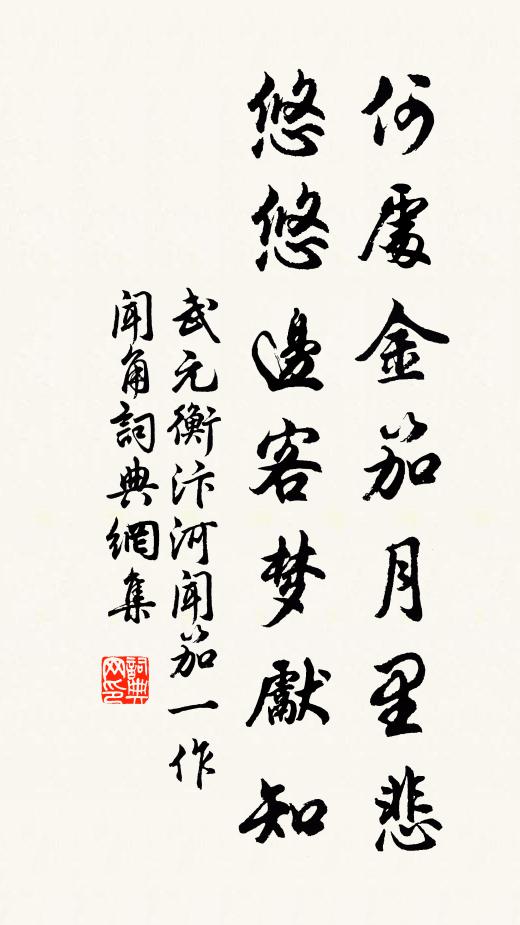 何處金笳月里悲
悠悠邊客梦獻知
武元衡汴河聞笳一作
聞角詞典網集
詞典
网印